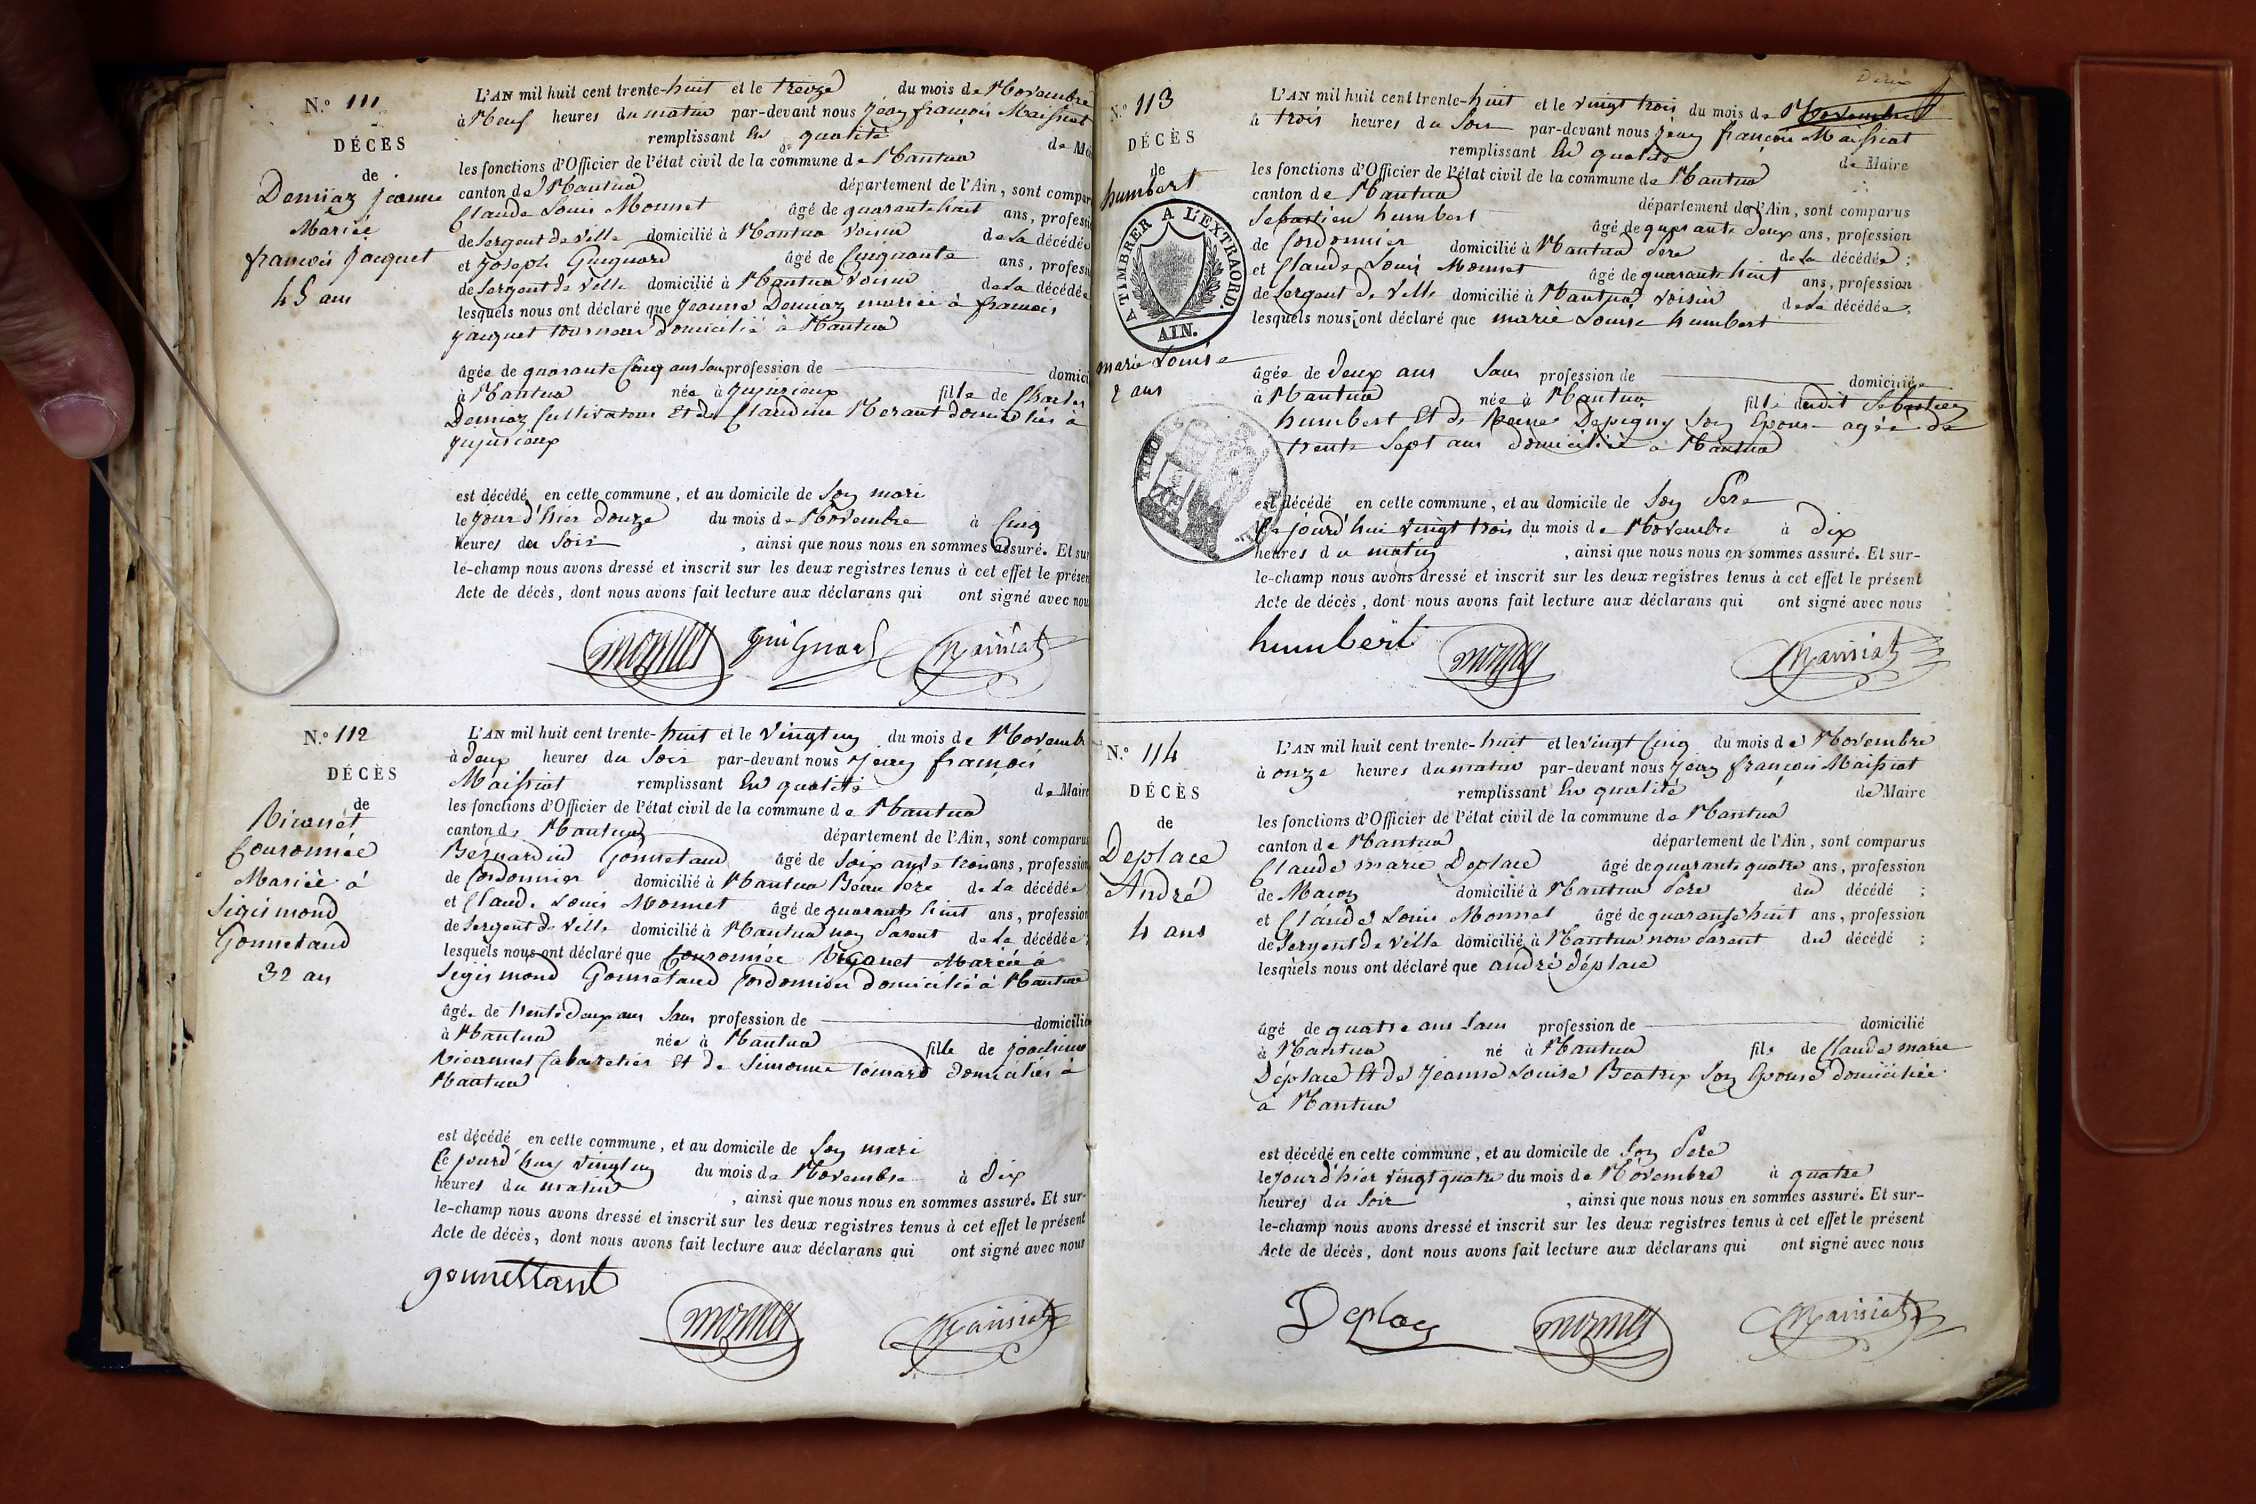 N.º 111
DÉCÈS
de
Demiaz jeanne
Mariée
françois jacquet
45 ans
L'AN mil huit cent trente-huit et le treize du mois de Novembre
à Neuf heures du matin par-devant nous jean françois Maissiat
remplissant en qualité de
les fonctions d'Officier de l'état civil de la commune de Nantua
canton de Nantua département de l'Ain, sont
Claude Louis Monnet âgé de quarante huit ans,
de Sergent de Ville domicilié à Nantua voisin de la décédée
et Joseph Guignard âgé de Cinquante ans,
de Sergent de Ville domicilié à Nantua voisin de la décédée
lesquels nous ont déclaré que jeanne Demiaz mariée à françois
jacquet tourneur domicilié à Nantua
âgée de quarante cinq ans sans profession de
à Nantua née à fille de Charles
Demiaz Cultivateur et de Claudine domiciliés à
est décédé en cette commune, et au domicile de son mari
le jour d'hier douze du mois de Novembre à Cinq
heures du soir, ainsi que nous nous en sommes assuré. Et sur
le-champ nous avons dressé et inscrit sur les deux registres tenus à cet effet le
Acte de décès, dont nous avons fait lecture aux déclarans qui ont signé avec
monnet guignard Maissiat
N.º 112
DÉCÈS
de
Couronnée
Mariée à
Sigismond
Gonnetand
32 ans
L'AN mil huit cent trente-huit et le vingt un du mois de
à deux heures du soir par-devant nous jean françois
Maissiat remplissant en qualité de Maire
les fonctions d'Officier de l'état civil de la commune de Nantua
canton de Nantua département de l'Ain, sont comparus
Bernardin Gonnetand âgé de soixante trois ans, profession
de Cordonnier domicilié à Nantua Beau père de la décédée
et Claude Louis Monnet âgé de quarante huit ans, profession
de Sergent de Ville domicilié à Nantua non parent de la décédée;
lesquels nous ont déclaré que Couronnée Mariée à
Sigismond Gonnetand Cordonnier domicilié à Nantua
âgée de trente deux ans sans profession de domiciliée
à Nantua née à Nantua fille de joachim
Cabaretier et de Simonne domiciliés à
Nantua
est décédé en cette commune, et au domicile de son mari
Ce jourd'huy vingt un du mois de Novembre à dix
heures du matin, ainsi que nous nous en sommes assuré. Et sur-
le-champ nous avons dressé et inscrit sur les deux registres tenus à cet effet le présent
Acte de décès, dont nous avons fait lecture aux déclarans qui ont signé avec nous
gonnettand monnet Maissiat
N.º 113
DÉCÈS
de
humbert
A TIMBRER A L'EXTRAORD.
AIN.
marie Louise
2 ans
L'AN mil huit cent trente-huit et le vingt trois du mois de Novembre
à trois heures du soir par-devant nous jean françois Maissiat
remplissant en qualité de Maire
les fonctions d'Officier de l'état civil de la commune de Nantua
canton de Nantua département de l'Ain, sont comparus
Sebastien humbert âgé de quarante deux ans, profession
de Cordonnier domicilié à Nantua père de la décédée;
et Claude Louis Monnet âgé de quarante huit ans, profession
de Sergent de Ville domicilié à Nantua voisin de la décédée;
lesquels nous ont déclaré que marie Louise humbert
âgée de deux ans sans profession de domiciliée
à Nantua née à Nantua fille dudit Sebastien
humbert et de Depigny son épouse agée de
trente sept ans domiciliée à Nantua
est décédé en cette commune, et au domicile de son père
Ce jourd'hui vingt trois du mois de Novembre à dix
heures du matin, ainsi que nous nous en sommes assuré. Et sur-
le-champ nous avons dressé et inscrit sur les deux registres tenus à cet effet le présent
Acte de décès, dont nous avons fait lecture aux déclarans qui ont signé avec nous
humbert monnet Maissiat
N.º 114
DÉCÈS
de
Deplace
André
4 ans
L'AN mil huit cent trente-huit et le vingt cinq du mois de Novembre
à onze heures du matin par-devant nous jean françois Maissiat
remplissant en qualité de Maire
les fonctions d'Officier de l'état civil de la commune de Nantua
canton de Nantua département de l'Ain, sont comparus
Claude marie Deplace âgé de quarante quatre ans, profession
de Maçon domicilié à Nantua père du décédé;
et Claude Louis Monnet âgé de quarante huit ans, profession
de Sergent de Ville domicilié à Nantua non parent du décédé;
lesquels nous ont déclaré que andré déplace
âgé de quatre ans sans profession de domicilié
à Nantua né à Nantua fils de Claude marie
Déplace et de Jeanne Louise Beatrix son épouse domiciliée
à Nantua
est décédé en cette commune, et au domicile de son père
le jour d'hier vingt quatre du mois de Novembre à quatre
heures du soir, ainsi que nous nous en sommes assuré. Et sur-
le-champ nous avons dressé et inscrit sur les deux registres tenus à cet effet le présent
Acte de décès, dont nous avons fait lecture aux déclarans qui ont signé avec nous
monnet Maissiat